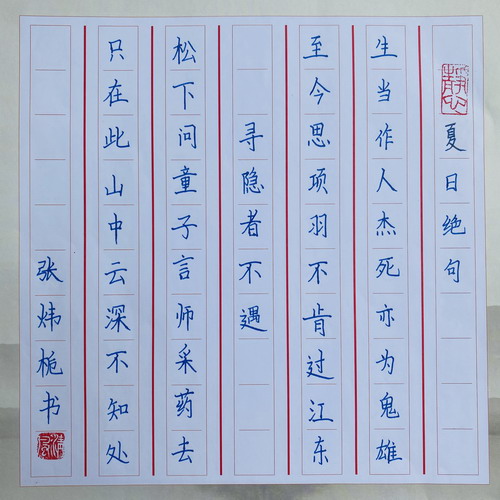 夏日绝句
生当作人杰死亦为鬼雄
至今思项羽不肯过江东
寻隐者不遇
松下问童子言师采药去
只在此山中云深不知处
张炜栀书